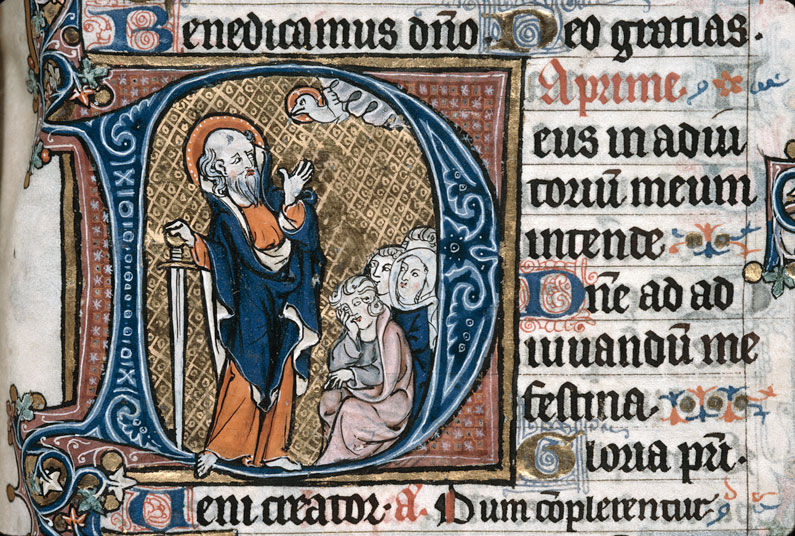 Benedicamus dño. Deo gratias.
A prime.
Deus in adiu
toriũ meum
intende
Dñe ad ad
iuuandũ me
festina.
Gloria pr̃i.
Ueni creator. a. Dum cõplerentur